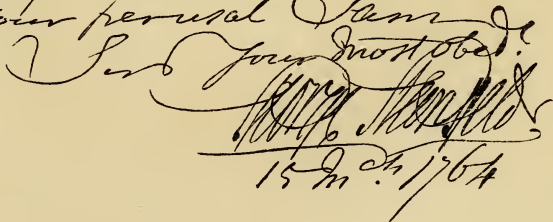 our perusal I am
Sir Your most obedt.
George
15 Mch 1764